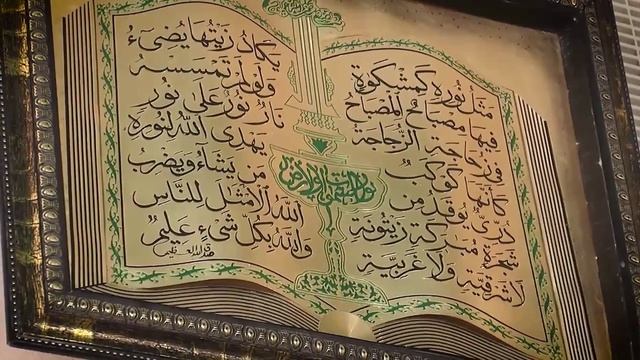 نور السموات والارض
مثل نوره كمشكوة
فيها مصباح المصباح
في زجاجة الزجاجة
كأنها كوكب
دري يوقد من
شجرة مبركة زيتونة
لا شرقية ولا غربية
يكاد زيتها يضيء
ولو لم تمسسه
نار نور على نور
يهدي الله لنوره
من يشاء ويضرب
الله الامثل للناس
والله بكل شيء عليم